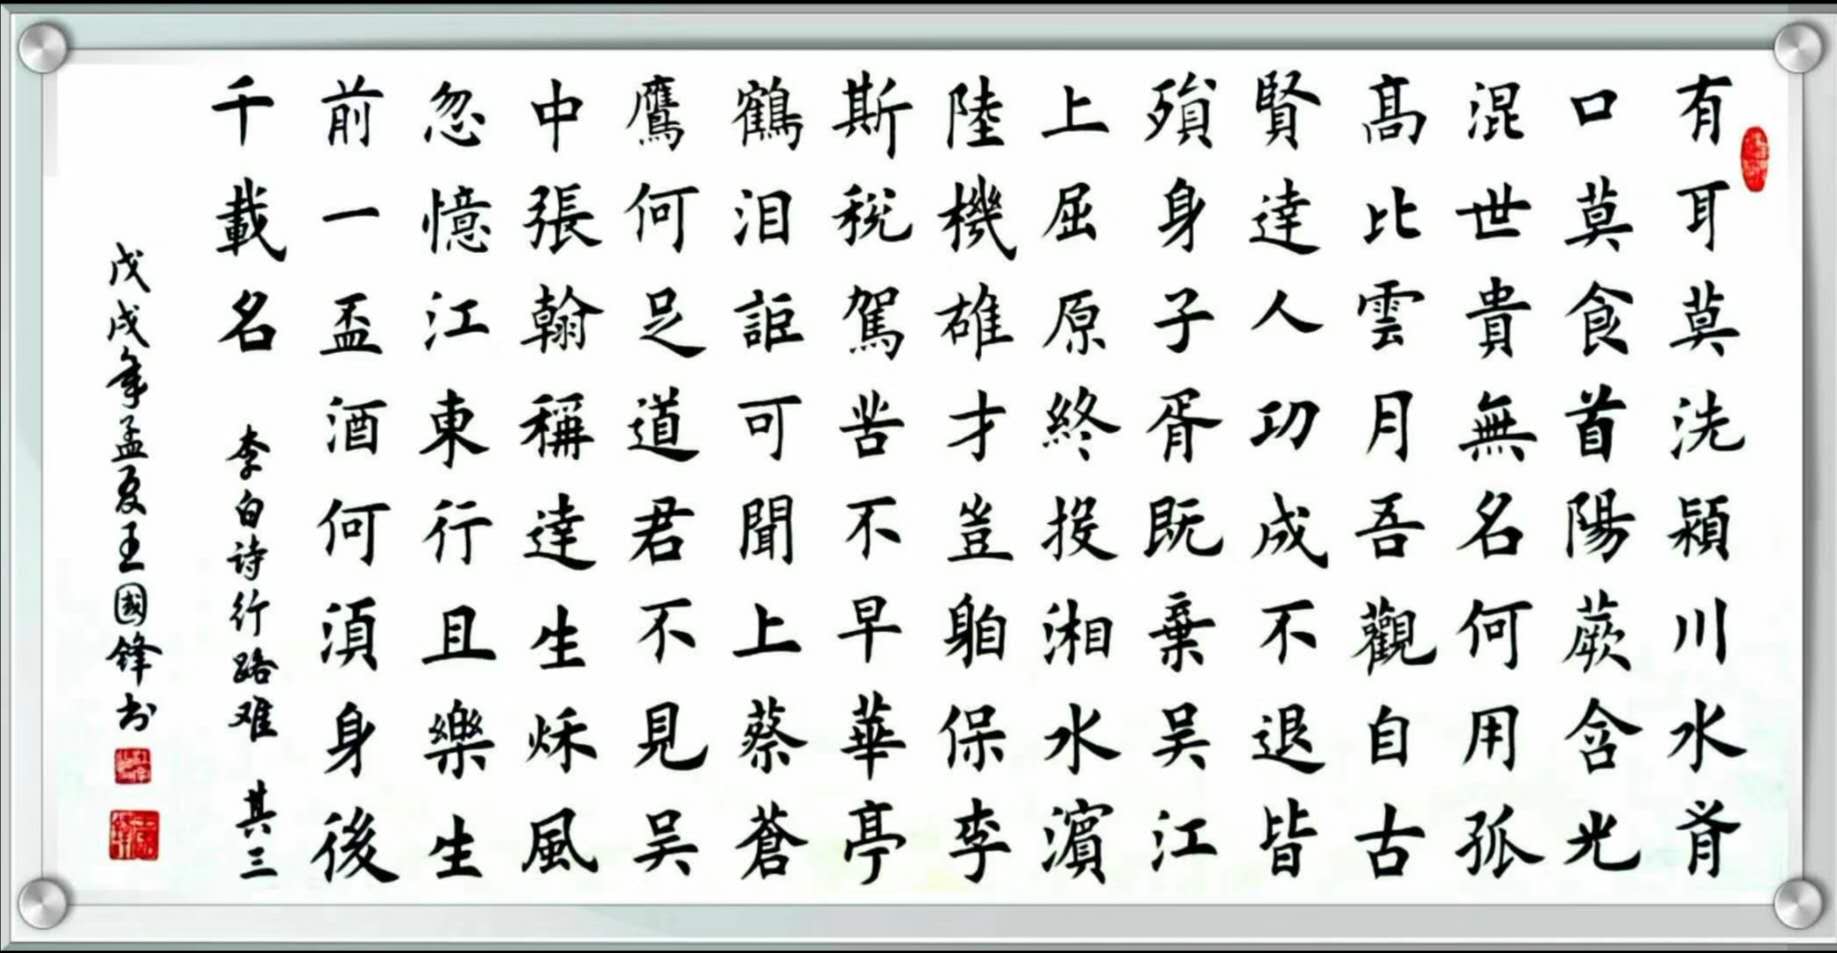 有耳莫洗潁川水有
口莫食首陽蕨含光
混世貴無名何用孤
髙比雲月吾觀自古
賢達人功成不退皆
殞身子胥既棄吴江
上屈原終投湘水濵
陸機雄才豈自保李
斯稅駕苦不早華亭
鶴泪詎可聞上蔡蒼
鷹何足道君不見吴
中張翰稱達生秌風
忽憶江東行且樂生
前一盃酒何須身後
千載名
李白诗行路难 其三
戊戌年孟夏王國鋒书